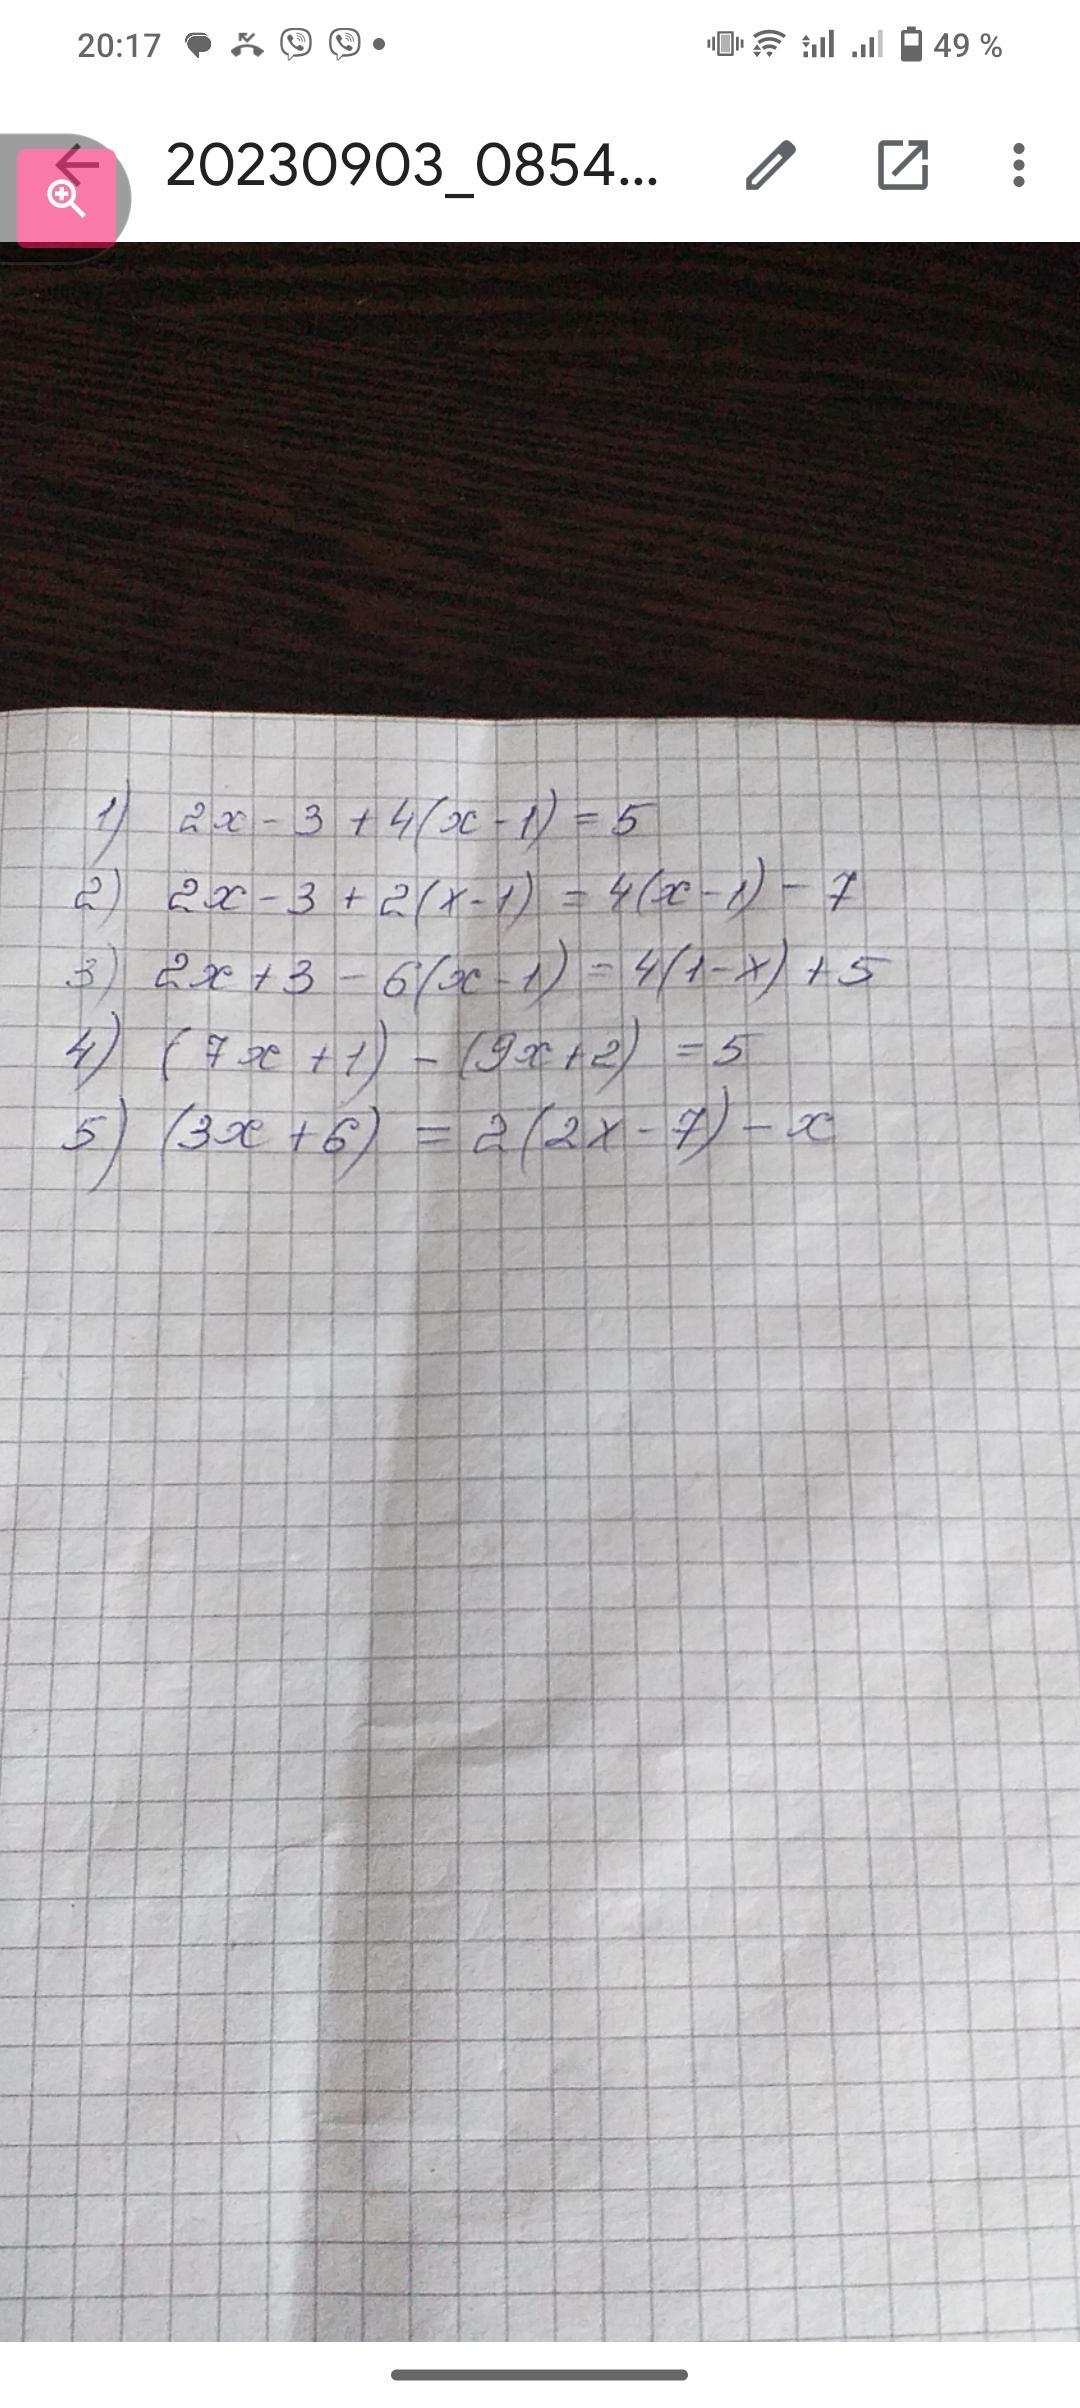 20:17 49 %
20230903_0854...
1) 2x - 3 + 4(x - 1) = 5
2) 2x - 3 + 2(x - 1) = 4(x - 1) - 7
3) 2x + 3 - 6(x - 1) = 4(1 - x) + 5
4) (7x + 1) - (9x + 2) = 5
5) (3x + 6) = 2(2x - 7) - x